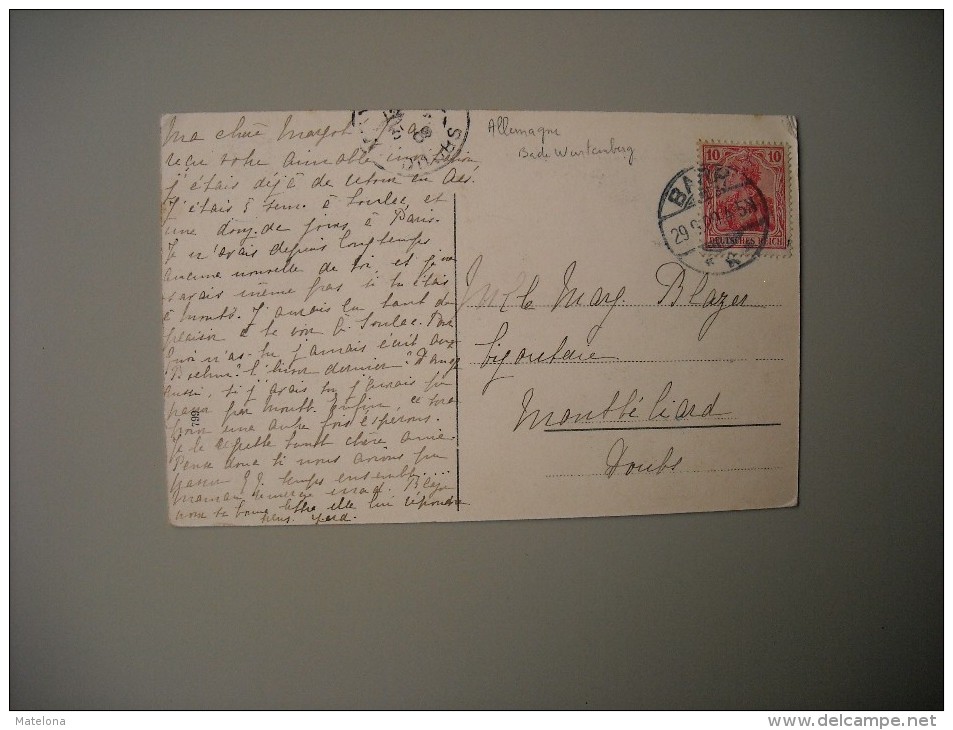 Ma chère Margot J'ai
reçu votre aimable invitation
j'étais déjà de retour en Als.
J'étais 5 sem. à Soulac, et
une douz. de jours à Paris.
Je n'avais depuis longtemps
aucune nouvelle de toi, et je ne
savais même pas si tu étais
à Montb. J'aurais eu tant de
plaisir à te voir à Soulac. Pour
quoi n'as-tu jamais écrit aux
l'hiver dernier?
aussi, si j'avais su j'aurais pu
passer par Montb. Enfin, ce sera
pour une autre fois espérons.
Je le regrette tant chère amie.
Pense donc si nous avions pu
passer qq. temps ensemble....
Maman remercie mad. Blazer
pour sa bonne lettre elle lui répondra
plus tard.
799
Allemagne
Bade Wurtemberg
10 10
DEUTSCHES REICH
BASE
29
Mlle Marg. Blazer
bijouterie
Montbéliard
Doubs
Matelona
www.delcampe.net